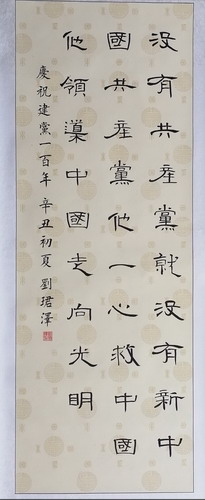 没有共産黨就没有新中
國共産黨他一心救中國
他領導中國走向光明
慶祝建黨一百年辛丑初夏劉珺澤